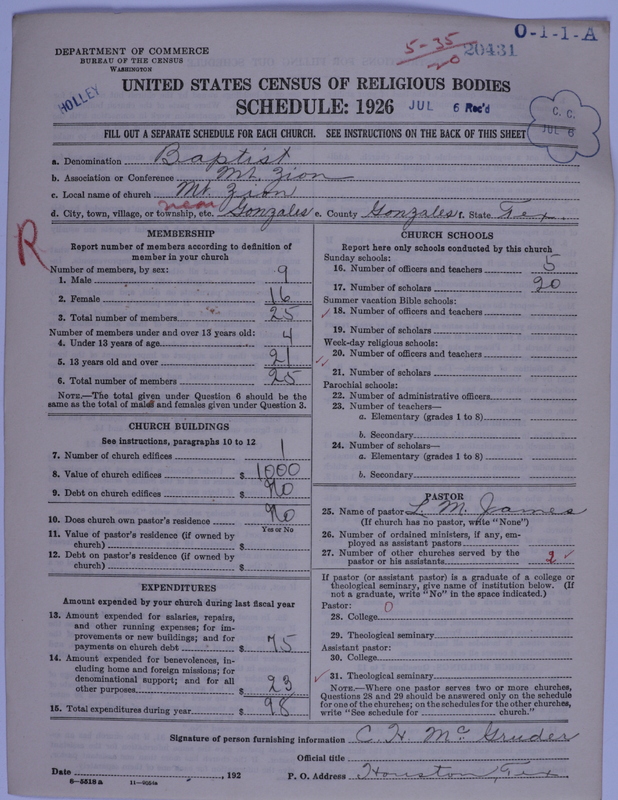 O-1-1-A
5-35
20
20431
DEPARTMENT OF COMMERCE
BUREAU OF THE CENSUS
WASHINGTON
HOLLEY
UNITED STATES CENSUS OF RELIGIOUS BODIES
SCHEDULE: 1926 JUL 6 Rec'd
C. C.
JUL 6
FILL OUT A SEPARATE SCHEDULE FOR EACH CHURCH. SEE INSTRUCTIONS ON THE BACK OF THIS SHEET
a. Denomination Baptist
b. Association or Conference Mt. Zion
c. Local name of church Mt. Zion
near
d. City, town, village, or township, etc. Gonzales e. County Gonzales f. State Tex.
R
MEMBERSHIP
Report number of members according to definition of
member in your church
Number of members, by sex:
1. Male 9
2. Female 16
3. Total number of members 25
Number of members under and over 13 years old:
4. Under 13 years of age 4
5. 13 years old and over 21
6. Total number of members 25
NOTE.—The total given under Question 6 should be
same as the total of males and females given under Question 3.
CHURCH BUILDINGS
See instructions, paragraphs 10 to 12
7. Number of church edifices 1
8. Value of church edifices $ 1000
9. Debt on church edifices $ No
10. Does church own pastor's residence No
Yes or No
11. Value of pastor's residence (if owned by
church) $
12. Debt on pastor's residence (if owned by
church) $
EXPENDITURES
Amount expended by your church during last fiscal year
13. Amount expended for salaries, repairs,
and other running expenses; for im-
provements or new buildings; and for
payments on church debt $ 75
14. Amount expended for benevolences, in-
cluding home and foreign missions; for
denominational support; and for all
other purposes $ 23
15. Total expenditures during year $ 98
CHURCH SCHOOLS
Report here only schools conducted by this church
Sunday schools:
16. Number of officers and teachers 5
17. Number of scholars 20
Summer vacation Bible schools:
18. Number of officers and teachers
19. Number of scholars
Week-day religious schools:
20. Number of officers and teachers
21. Number of scholars
Parochial schools:
22. Number of administrative officers
23. Number of teachers—
a. Elementary (grades 1 to 8)
b. Secondary
24. Number of scholars—
a. Elementary (grades 1 to 8)
b. Secondary
PASTOR
25. Name of pastor L. M. James
(If church has no pastor, write "None")
26. Number of ordained ministers, if any, em-
ployed as assistant pastors
27. Number of other churches served by the
pastor or his assistants 2
If pastor (or assistant pastor) is a graduate of a college or
theological seminary, give name of institution below. (If
not a graduate, write "No" in the space indicated.)
Pastor: 0
28. College
29. Theological seminary
Assistant pastor:
30. College
31. Theological seminary
NOTE.—Where one pastor serves two or more churches,
Questions 28 and 29 should be answered only on the schedule
for one of the churches; on the schedules for the other churches,
write "See schedule for church."
Signature of person furnishing information C. H. McGruder
Official title
Date , 192 P. O. Address Houston, Tex
8-5518a 11-9054a